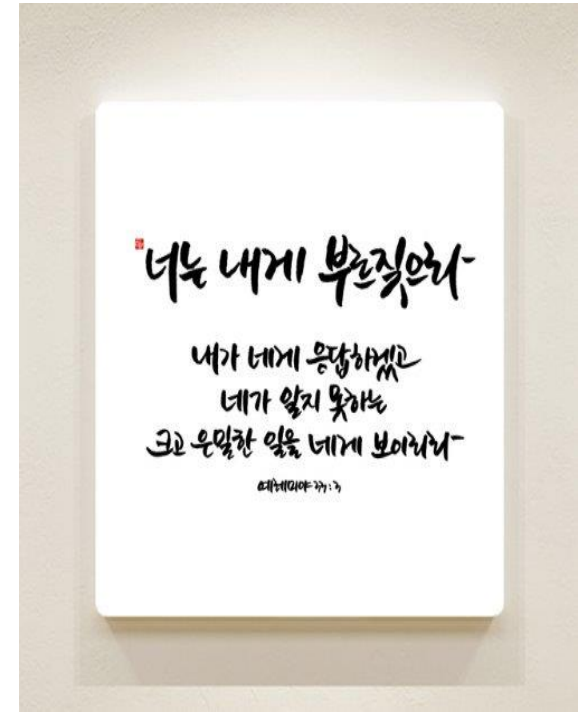 너는 내게 부르짖으라
내가 네게 응답하겠고
네가 알지 못하는
크고 은밀한 일을 네게 보이리라
예레미야 33:3